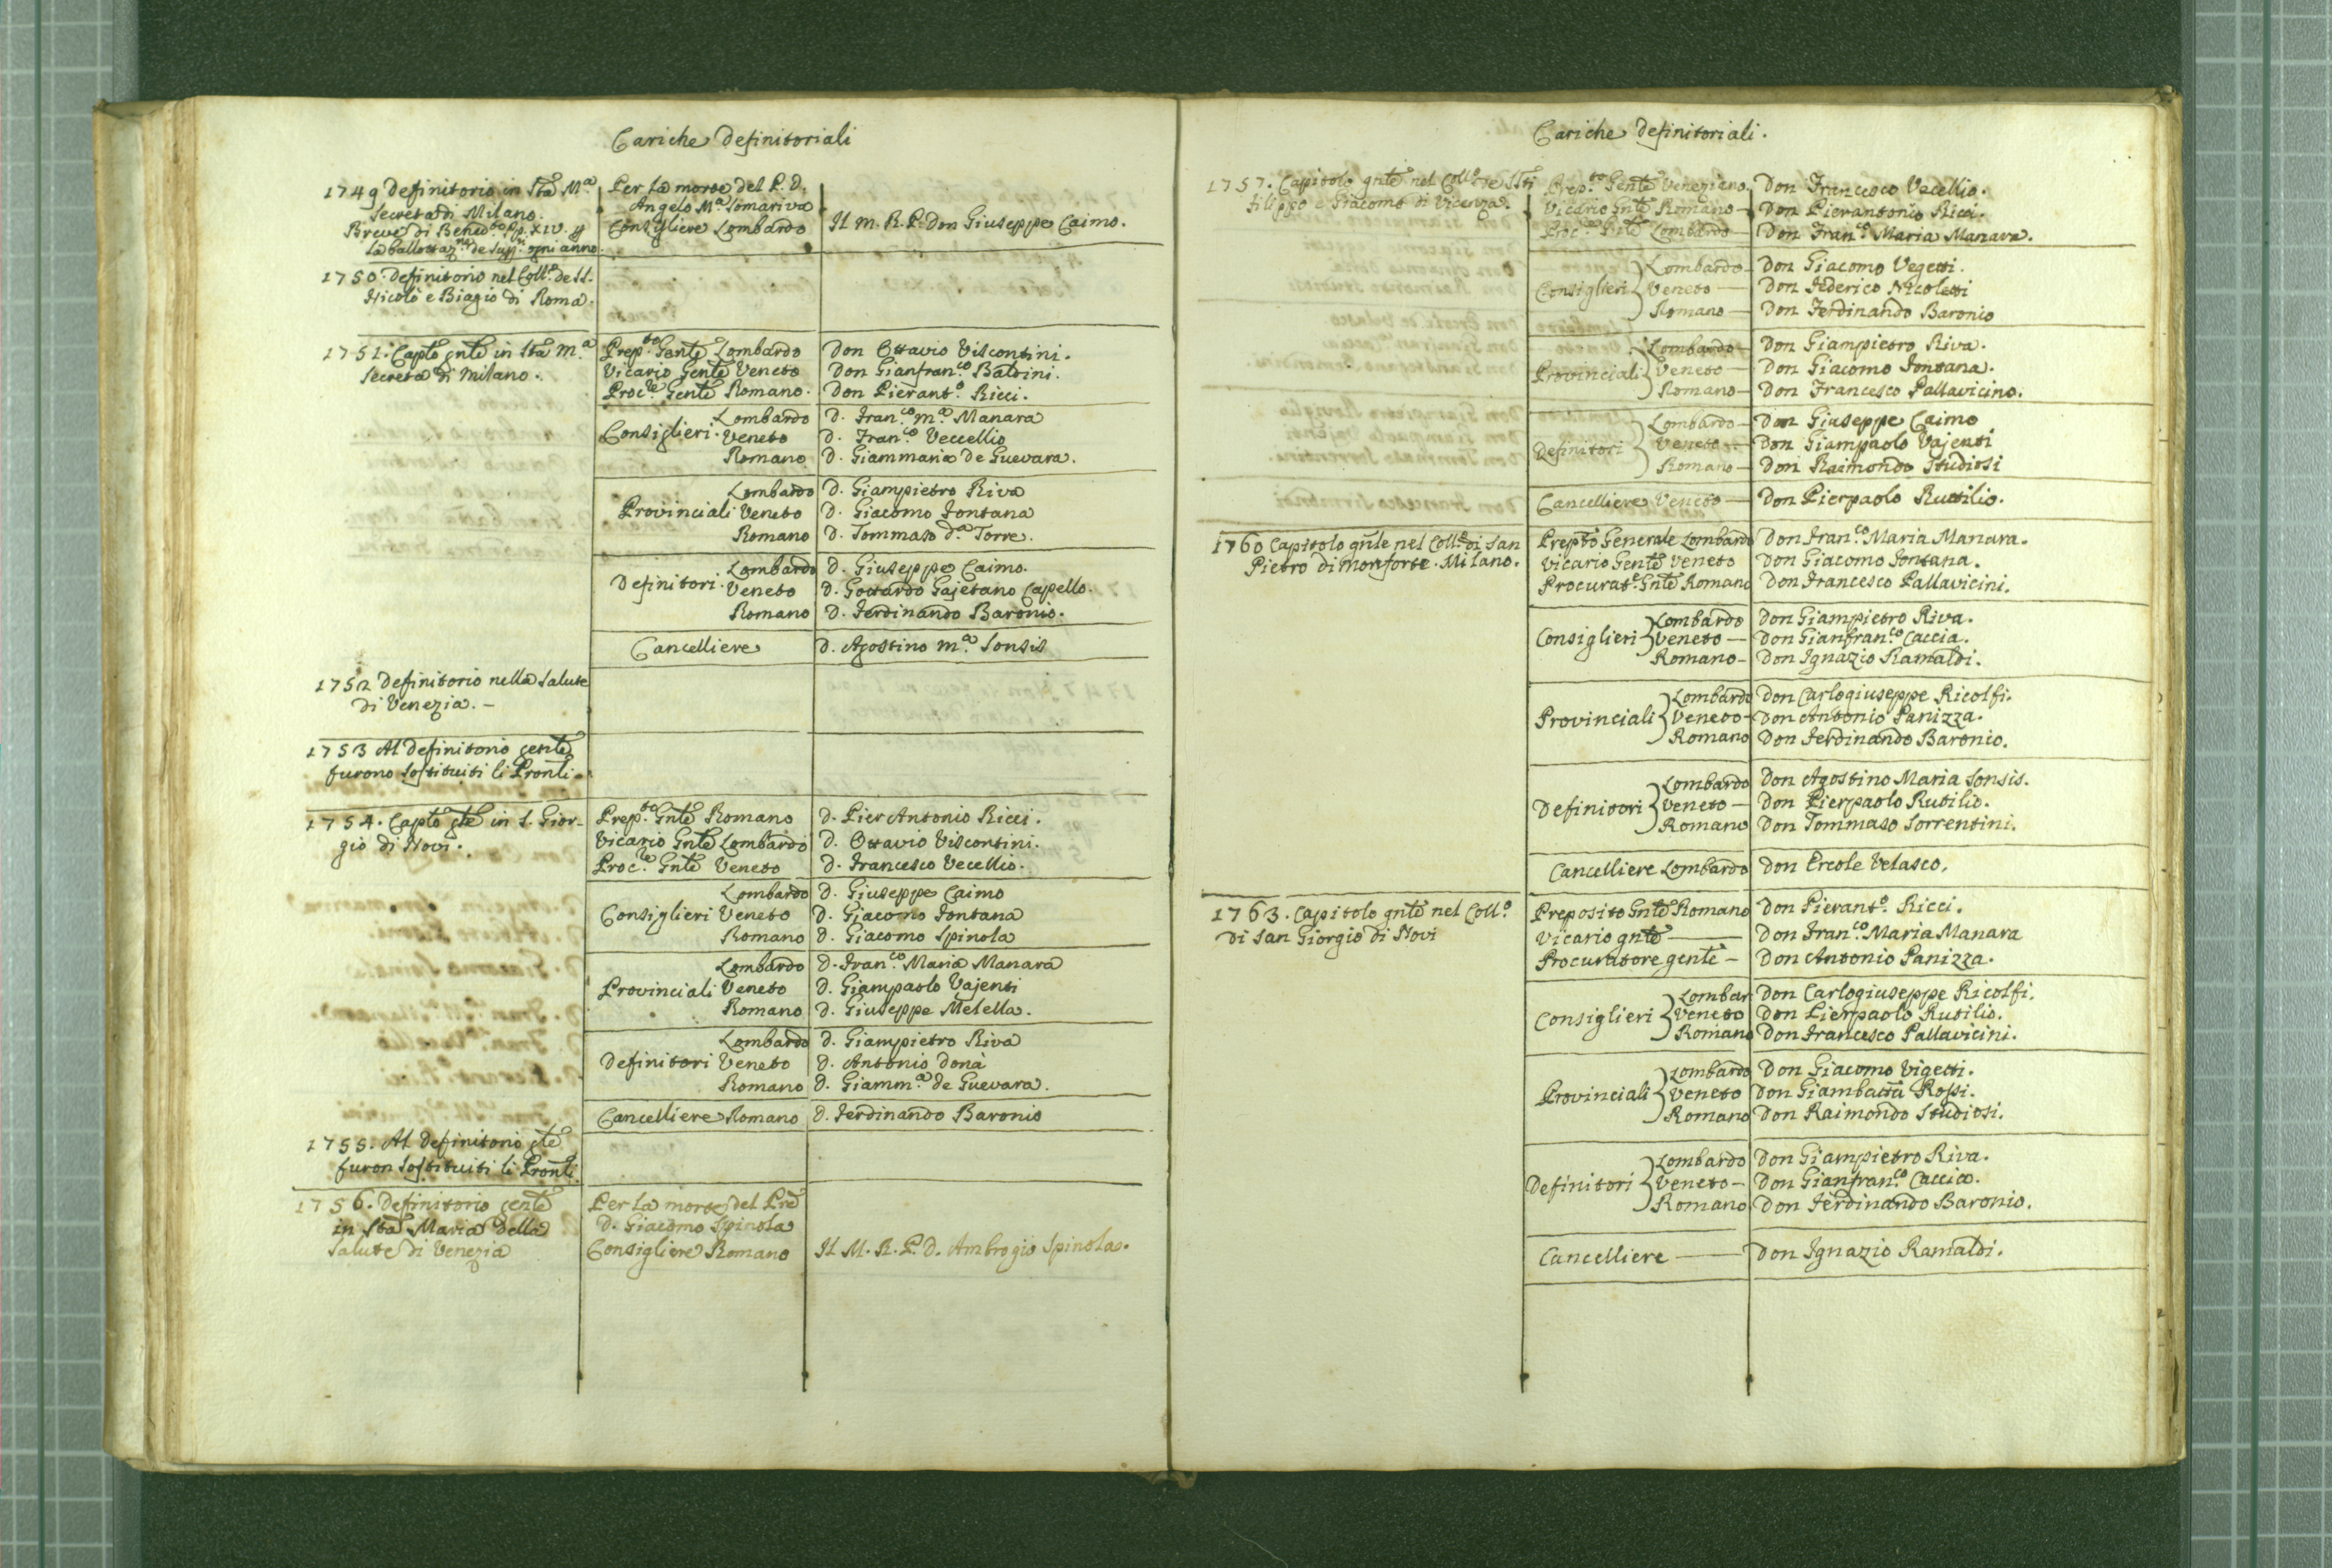 Cariche Definitoriali
1749 Definitorio in Sta Mª Per la morte del P. D.
Secreta di Milano. Angelo Mª Somariva
Breve di Bened.to Pp. XIV. Consigliere Lombardo Il M. R. P. Don Giuseppe Caimo.
la ballottaz.ne de Supp.ri ogni anno.
1750. Definitorio nel Coll.o de SS.
Nicolò e Biagio di Roma.
1751. Capto gnte in Sta Mª Prep.to Gente Lombardo Don Ottavio Viscontini.
Secreta di Milano. Vicario Gente Veneto Don Gianfran.co Baldini.
Proc.re Gente Romano. Don Pierant.o Ricci.
Lombardo D. Fran.co Mª Manara
Consiglieri. Veneto D. Fran.co Veccellio
Romano D. Giammaria de Guevara.
Lombardo D. Giampietro Riva
Provinciali Veneto D. Giacomo Fontana
Romano D. Tommaso dª Torre.
Lombardo D. Giuseppe Caimo.
Definitori. Veneto D. Gottardo Gajetano Capello.
Romano D. Ferdinando Baronio.
Cancelliere D. Agostino Mª Sonsis
1752 Definitorio nella Salute
di Venezia. –
1753 Al Definitorio gente
furono sostituiti li Pronti.
1754. Capto gte in S. Gior- Prep.to Gnte Romano D. Pier Antonio Ricci.
gio di Novi. Vicario Gnte Lombardo D. Ottavio Viscontini.
Proc.re Gnte Veneto D. Francesco Vecellio.
Lombardo D. Giuseppe Caimo
Consiglieri Veneto D. Giacomo Fontana
Romano D. Giacomo Spinola
Lombardo D. Fran.co Maria Manara
Provinciali Veneto D. Giampaolo Vajenti
Romano D. Giuseppe Melella.
Lombardo D. Giampietro Riva
Definitori Veneto D. Antonio Donà
Romano D. Giamm.ª de Guevara.
Cancelliere Romano D. Ferdinando Baronio
1755. Al Definitorio gte
furon sostituiti li Pronti
1756. Definitorio gente Per la morte del Pre
in Sta Maria della D. Giacomo Spinola
Salute di Venezia Consigliere Romano Il M. R. P. D. Ambrogio Spinola.
Cariche Definitoriali.
1757. Capitolo gnte nel Coll.o de SSti Prep.to Gente Veneziano Don Francesco Vecellio.
Filippo e Giacomo di Vicenza. Vicario Gnte Romano – Don Pierantonio Ricci.
Proc.re Gnte Lombardo – Don Fran.co Maria Manara.
Lombardo – Don Giacomo Vegetti.
Consiglieri Veneto – Don Federico Nicoletti
Romano – Don Ferdinando Baronio
Lombardo – Don Giampietro Riva.
Provinciali Veneto – Don Giacomo Fontana.
Romano – Don Francesco Pallavicino.
Lombardo – Don Giuseppe Caimo
Definitori Veneto – Don Giampaolo Vajenti
Romano – Don Raimondo Studiosi
Cancelliere Veneto – Don Pierpaolo Ruttilio.
1760 Capitolo gnle nel Coll.o di San Prepto Generale Lombardo Don Fran.co Maria Manara.
Pietro di Monforte. Milano. Vicario Gente Veneto Don Giacomo Fontana.
Procurat.e Gnte Romano Don Francesco Pallavicini.
Lombardo Don Giampietro Riva.
Consiglieri Veneto – Don Gianfran.co Caccia.
Romano – Don Ignazio Ramaldi.
Lombardo Don Carlogiuseppe Ricolfi.
Provinciali Veneto – Don Antonio Panizza.
Romano Don Ferdinando Baronio.
Lombardo Don Agostino Maria Sonsis.
Definitori Veneto – Don Pierpaolo Rutilio.
Romano Don Tommaso Sorrentini.
Cancelliere Lombardo Don Ercole Velasco.
1763. Capitolo gnte nel Coll.o Preposito Gnte Romano Don Pierant.o Ricci.
di San Giorgio di Novi Vicario gnte – Don Fran.co Maria Manara
Procuratore gente – Don Antonio Panizza.
Lombar Don Carlogiuseppe Ricolfi.
Consiglieri Veneto Don Pierpaolo Rutilio.
Romano Don Francesco Pallavicini.
Lombardo Don Giacomo Vigetti.
Provinciali Veneto Don Giambatta Rossi.
Romano Don Raimondo Studiosi.
Lombardo Don Giampietro Riva.
Definitori Veneto – Don Gianfran.co Caccico.
Romano Don Ferdinando Baronio.
Cancelliere – Don Ignazio Ramaldi.